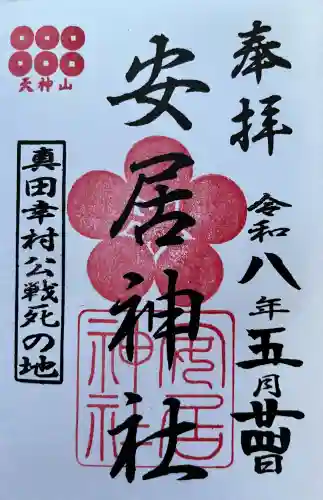 奉拝
令和八年五月廿四日
安居神社
安居神社
天神山
真田幸村公戦死の地